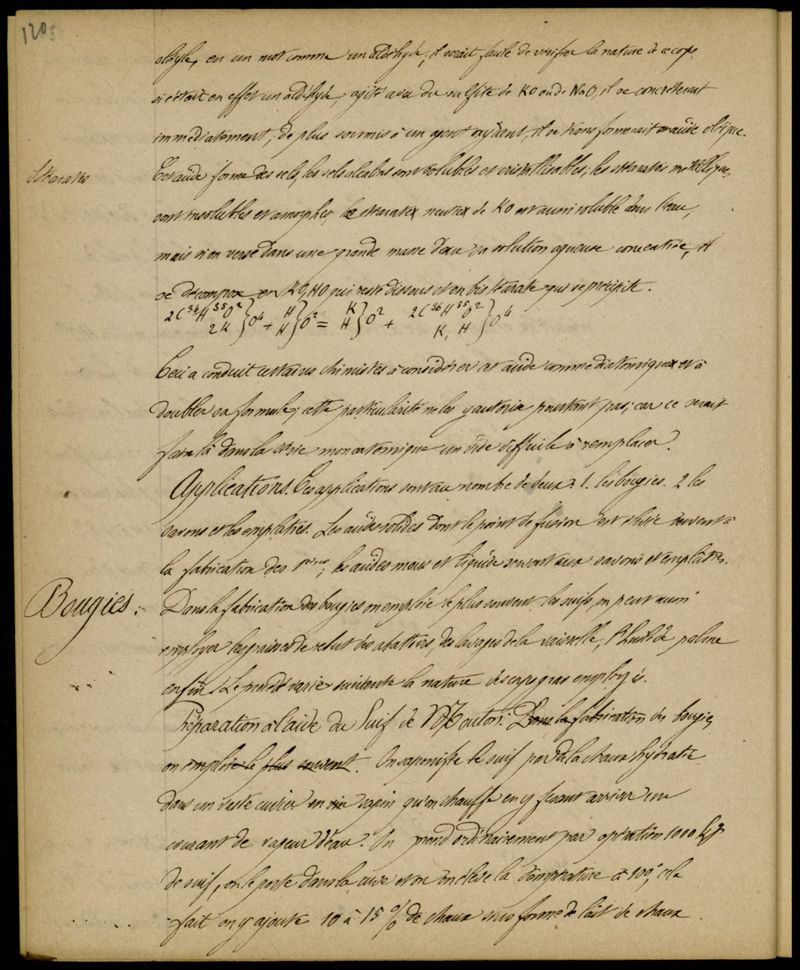 1205
oléyle, en un mot comme un aldéhyde; il serait facile de vérifier la nature de ce corps
si c'était en effet un aldéhyde, agité avec du sulfite de KO ou de NaO, il se concréterait
immédiatement; de plus soumis à un agent oxydant, il se transformerait en acide oléique.
Stearates
Cet acide forme des sels, les sels alcalins sont solubles et cristallisables, les stearates métalliques
sont insolubles et amorphes, le stearate neutre de KO est aussi soluble dans l'eau,
mais si on verse dans une grande masse d'eau sa solution aqueuse concentrée, il
se décompose en KO,HO qui reste dissous et en bistéarate qui se précipite.
2C36H35O2 / 2K } O4 + H / H } O2 = K / H } O2 + 2C36H35O2 / K, H } O4
Ceci a conduit certains chimistes à considérer cet acide comme diatomique et à
doubler sa formule; cette particularité ne les y autorise pourtant pas; car ce serait
faire là dans la série monoatomique un vide difficile à remplacer.
Applications. Ces applications sont au nombre de deux: 1. les bougies. 2 les
savons et les emplâtres. Les acides solides dont le point de fusion est élevé servent à
la fabrication des 1ères; les acides mous et liquides servent aux savons et emplâtres.
Bougies.
Dans la fabrication des bougies on emploie le plus souvent les suifs, on peut aussi
employer les graisses de rebut des abattoirs, des lavages de la vaisselle, l'huile de palme
enfin. Le procédé varie suivant la nature des corps gras employés.
Préparation à l'aide du Suif de Mouton: Dans la fabrication des bougies
on emploie le plus souvent. On saponifie le suif par de la chaux hydratée
dans un vaste cuvier en sapin qu'on chauffe en y faisant arriver un
courant de vapeur d'eau. On prend ordinairement par opération 1000 kgr
de suif, on le porte dans la cuve et on en élève la température à 100°, cela
fait on y ajoute 10 à 15 % de chaux sous forme de lait de chaux.